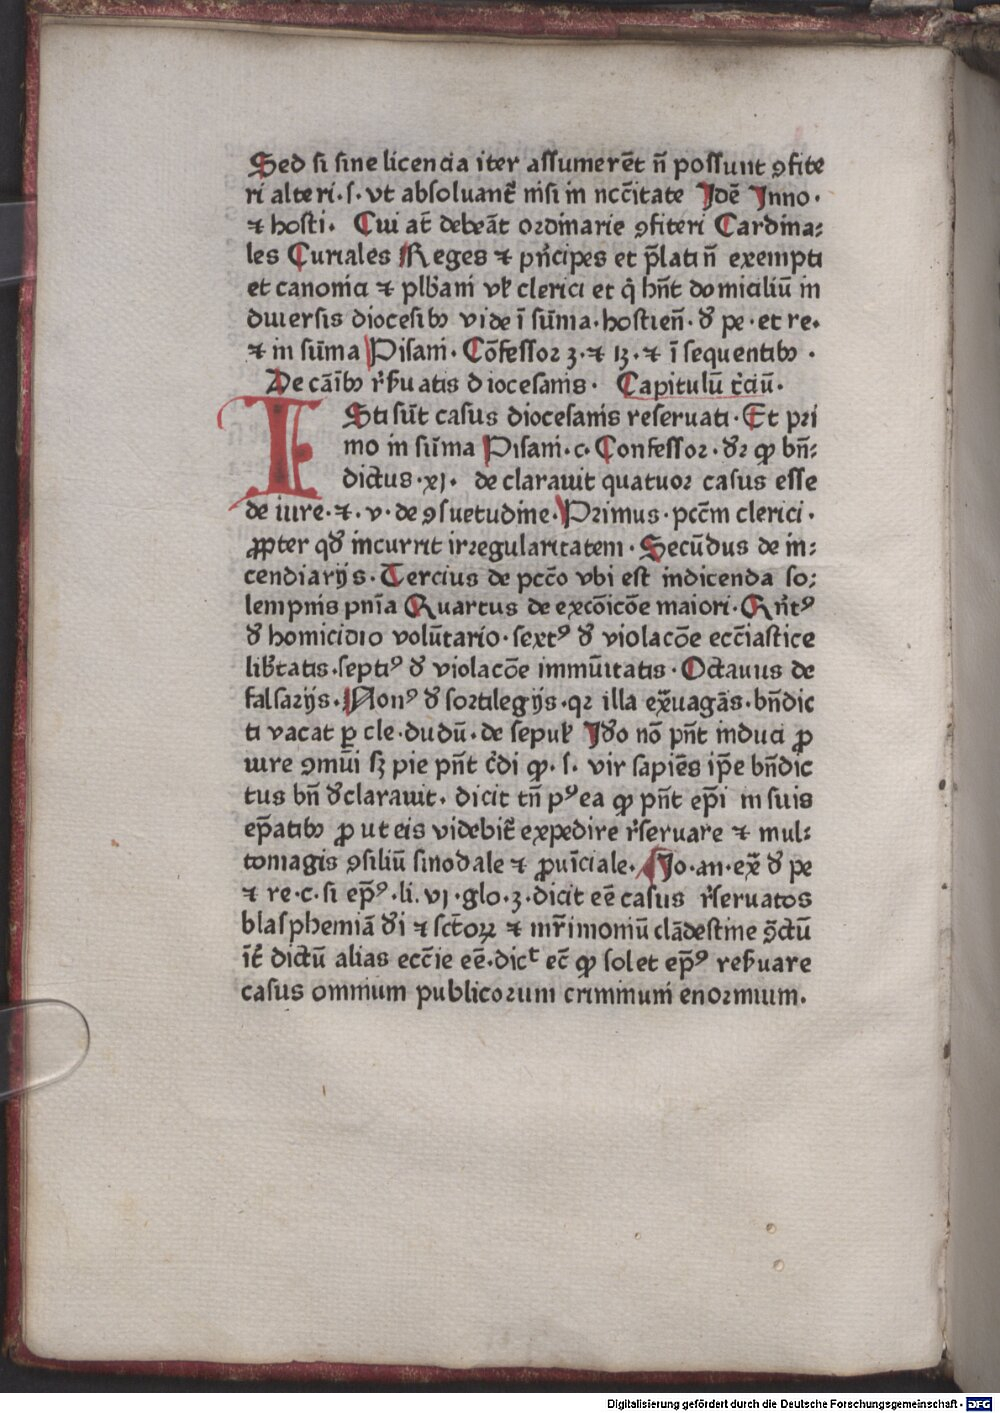 Sed si sine licencia iter assumerēt n̄ possunt ꝯfite
ri alteri·s· vt absoluant᷑ nisi in ncc̄itate Jdē Jnno·
⁊ hosti· Cui at̄ debeāt ordinarie ꝯfiteri Cardina⸗
les Curiales Reges ⁊ pn̄cipes et p̄lati n̄ exempti
et canonici ⁊ plb̄ani vꝉ clerici et q̄ hn̄t domiciliū in
diuersis diocesibꝫ vide ī sūma·hostien̄· đ pe·et re·
⁊ in sūma Pisani· Cōfessor 3·⁊ 13·⁊ ī sequentibꝫ ·
De cāibꝫ r̄ẜuatis diocesanis· Capitulū t̄ciū·
ISti sūt casus diocesanis reseruati·Et pri
mo in sūma Pisani·c·Confessor·đr ꝙ bn̄⸗
dictus·xj· declarauit quatuor casus esse
de iure·⁊·v·de ꝯsuetudine·Primus·pcc̄m clerici·
ꝓpter qđ incurrit irregularitatem·Secūdus de in⸗
cendiarijs·Tercius de pcc̄o vbi est indicenda so⸗
lempnis pn̄ia Quartus de excōicōe maiori·Qn̄tꝰ
đ homicidio volūtario·sextꝰ đ violacōe ecc̄iastice
lib̄tatis·septiꝰ đ violacōe immūitatis·Octauus de
falsarijs·Nonꝰ đ sortilegijs·qr illa ex̄uagās·bn̄dic
ti vacat ꝑ cle·dudū·de sepuꝉ Jđo nō pn̄t induci ꝓ
iure ꝯmūi sꝫ pie pn̄t c̄di ꝙ·s· vir sapiēs ip̄e bn̄dic
tus bn̄ đclarauit· dicit tn̄ pꝰea ꝙ pn̄t ep̄i in suis
ep̄atibꝫ ꝓut eis videbit᷑ expedire r̄seruare ⁊ mul⸗
tomagis ꝯsiliū sinodale ⁊ ꝓuīciale· Jo·an·ex̄ đ pe
⁊ re·c·si ep̄ꝰ·li·vj·glo·3·dicit eē casus r̄seruatos
blasphemiā đi ⁊ sct̄oꝝ ⁊ mr̄imoniū clādestine ꝯ̄ctū
īt᷑ dictū alias ecc̄ie eē·dicᵗ ec̄ ꝙ solet ep̄ꝰ reẜuare
casus omnium publicorum criminum enormium·
Digitalisierung gefördert durch die Deutsche Forschungsgemeinschaft - DFG